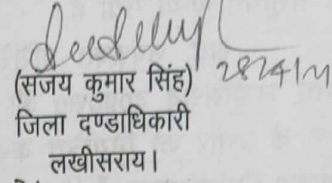 (संजय कुमार सिंह)
जिला दण्डाधिकारी
लखीसराय।